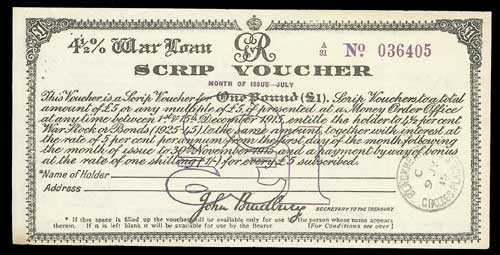 £1 £1
4½% War Loan GR A/81 No 036405
SCRIP VOUCHER
MONTH OF ISSUE—JULY
This Voucher is a Scrip Voucher for One Pound (£1). Scrip Vouchers to a total
amount of £5 or any multiple of £5 if presented at a Money Order Office
at any time between 1st & 15th December 1915, entitle the holder to 4½ per cent
War Stock or Bonds (1925-45) to the same amount, together with interest at
the rate of 5 per cent per annum from the first day of the month following
the month of issue to 30th November 1915 and a payment by way of bonus
at the rate of one shilling (1/-) for every £5 subscribed.
*Name of Holder
Address
John Bradbury
SECRETARY TO THE TREASURY.
* If this space is filled up the voucher will be available only for use of the person whose name appears
therein. If it is left blank it will be available for use by the Bearer. (For Conditions see over)